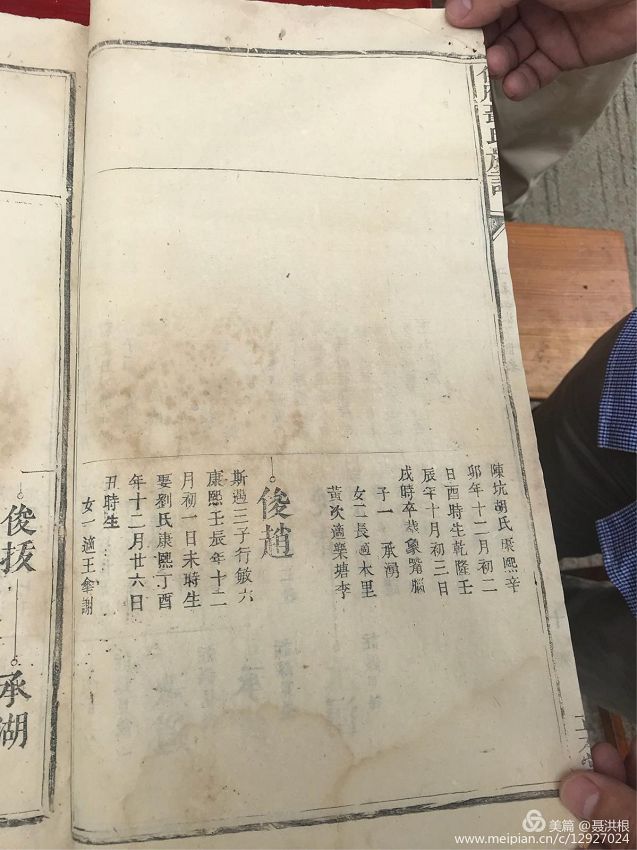 氏族譜
陳坑胡氏康熙辛
卯年十二月初二
日酉時生乾隆壬
辰年十月初三日
戌時卒葬象嘴腦
子一承湧
女二長適木里
黃次適樂塘李
俊趙
斯邊三子行敏六
康熙壬辰年十二
月初一日未時生
娶劉氏康熙丁酉
年十二月廿六日
丑時生
女一適王奢謝
俊拔
承湖
美篇 @聂洪根
www.meipian.cn/c/12927024